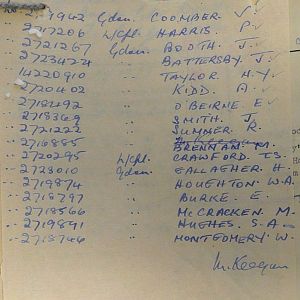 Gdsn. COOMBER. V.
2717206 L/Cpl. HARRIS. P.
2721267 Gdsn. BOOTH. J.
2723422 " BATTERSBY. J.
14220910 " TAYLOR. H.Y.
2720402 " KIDD. A.
2718492 " O'BEIRNE. E.
2718369 " SMITH. J.
2721222 " SUMMER. R.
2716885 " BRENNAN. M.
2720295 L/Cpl. CRAWFORD. T.S.
2723010 Gdsn. GALLAGHER. H.
2719874 " HOUGHTON. W.A.
2718797 " BURKE. E.
2718566 " McCRACKEN. M.
2719891 " HUGHES. S.A.
2718746 " MONTGOMERY. W.
M. Keegan